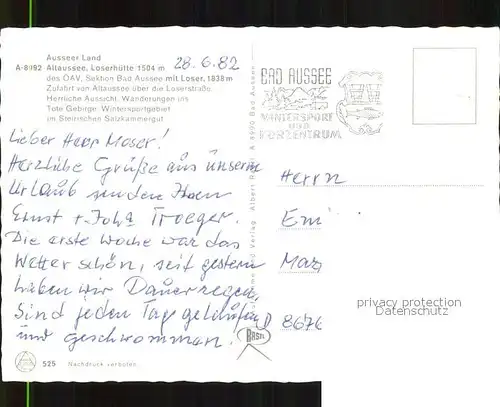 Ausseer Land
A-8992 Altaussee, Loserhütte 1504 m
des ÖAV, Sektion Bad Aussee mit Loser, 1838 m
Zufahrt von Altaussee über die Loserstraße.
Herrliche Aussicht. Wanderungen ins
Tote Gebirge. Wintersportgebiet
im Steirischen Salzkammergut
28.6.82
BAD AUSSEE
WINTERSPORT
UND
KURZENTRUM
Lieber Herr Moser!
Herzliche Grüße aus unserem
Urlaub senden Ihnen
Ernst u. Joha Troeger.
Die erste Woche war das
Wetter schön, seit gestern
haben wir Dauerregen.
Sind jeden Tag gelaufen
und geschwommen.
Herrn
Emi
Marz
D 8676
privacy protection
Datenschutz
Verlag Albert
A 8990 Bad Aussee
BASR
525 Nachdruck verboten.